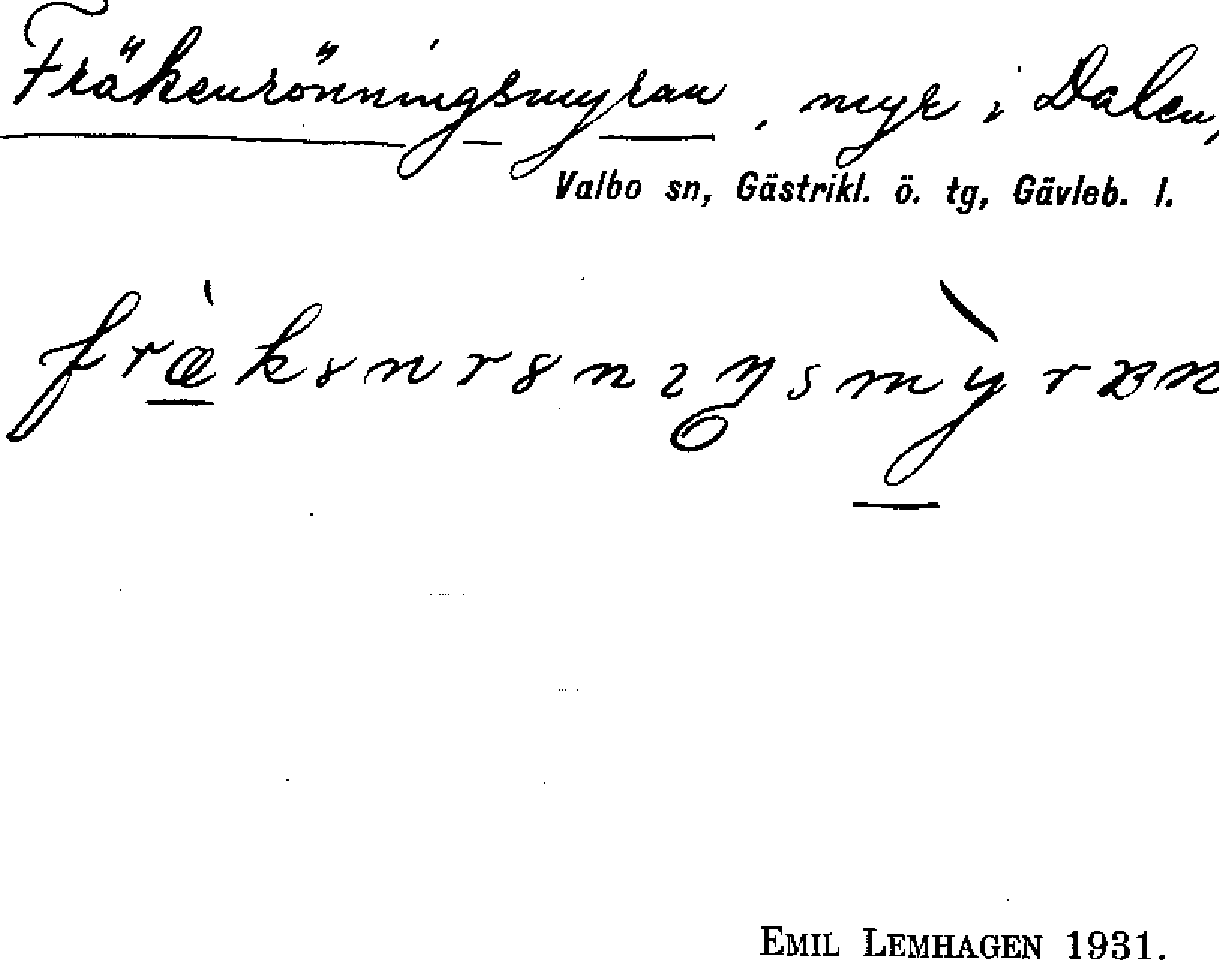 Fräkenrönningsmyran, myr i Dalen,
Valbo sn, Gästrikl. ö. tg, Gävleb. l.
EMIL LEMHAGEN 1931.